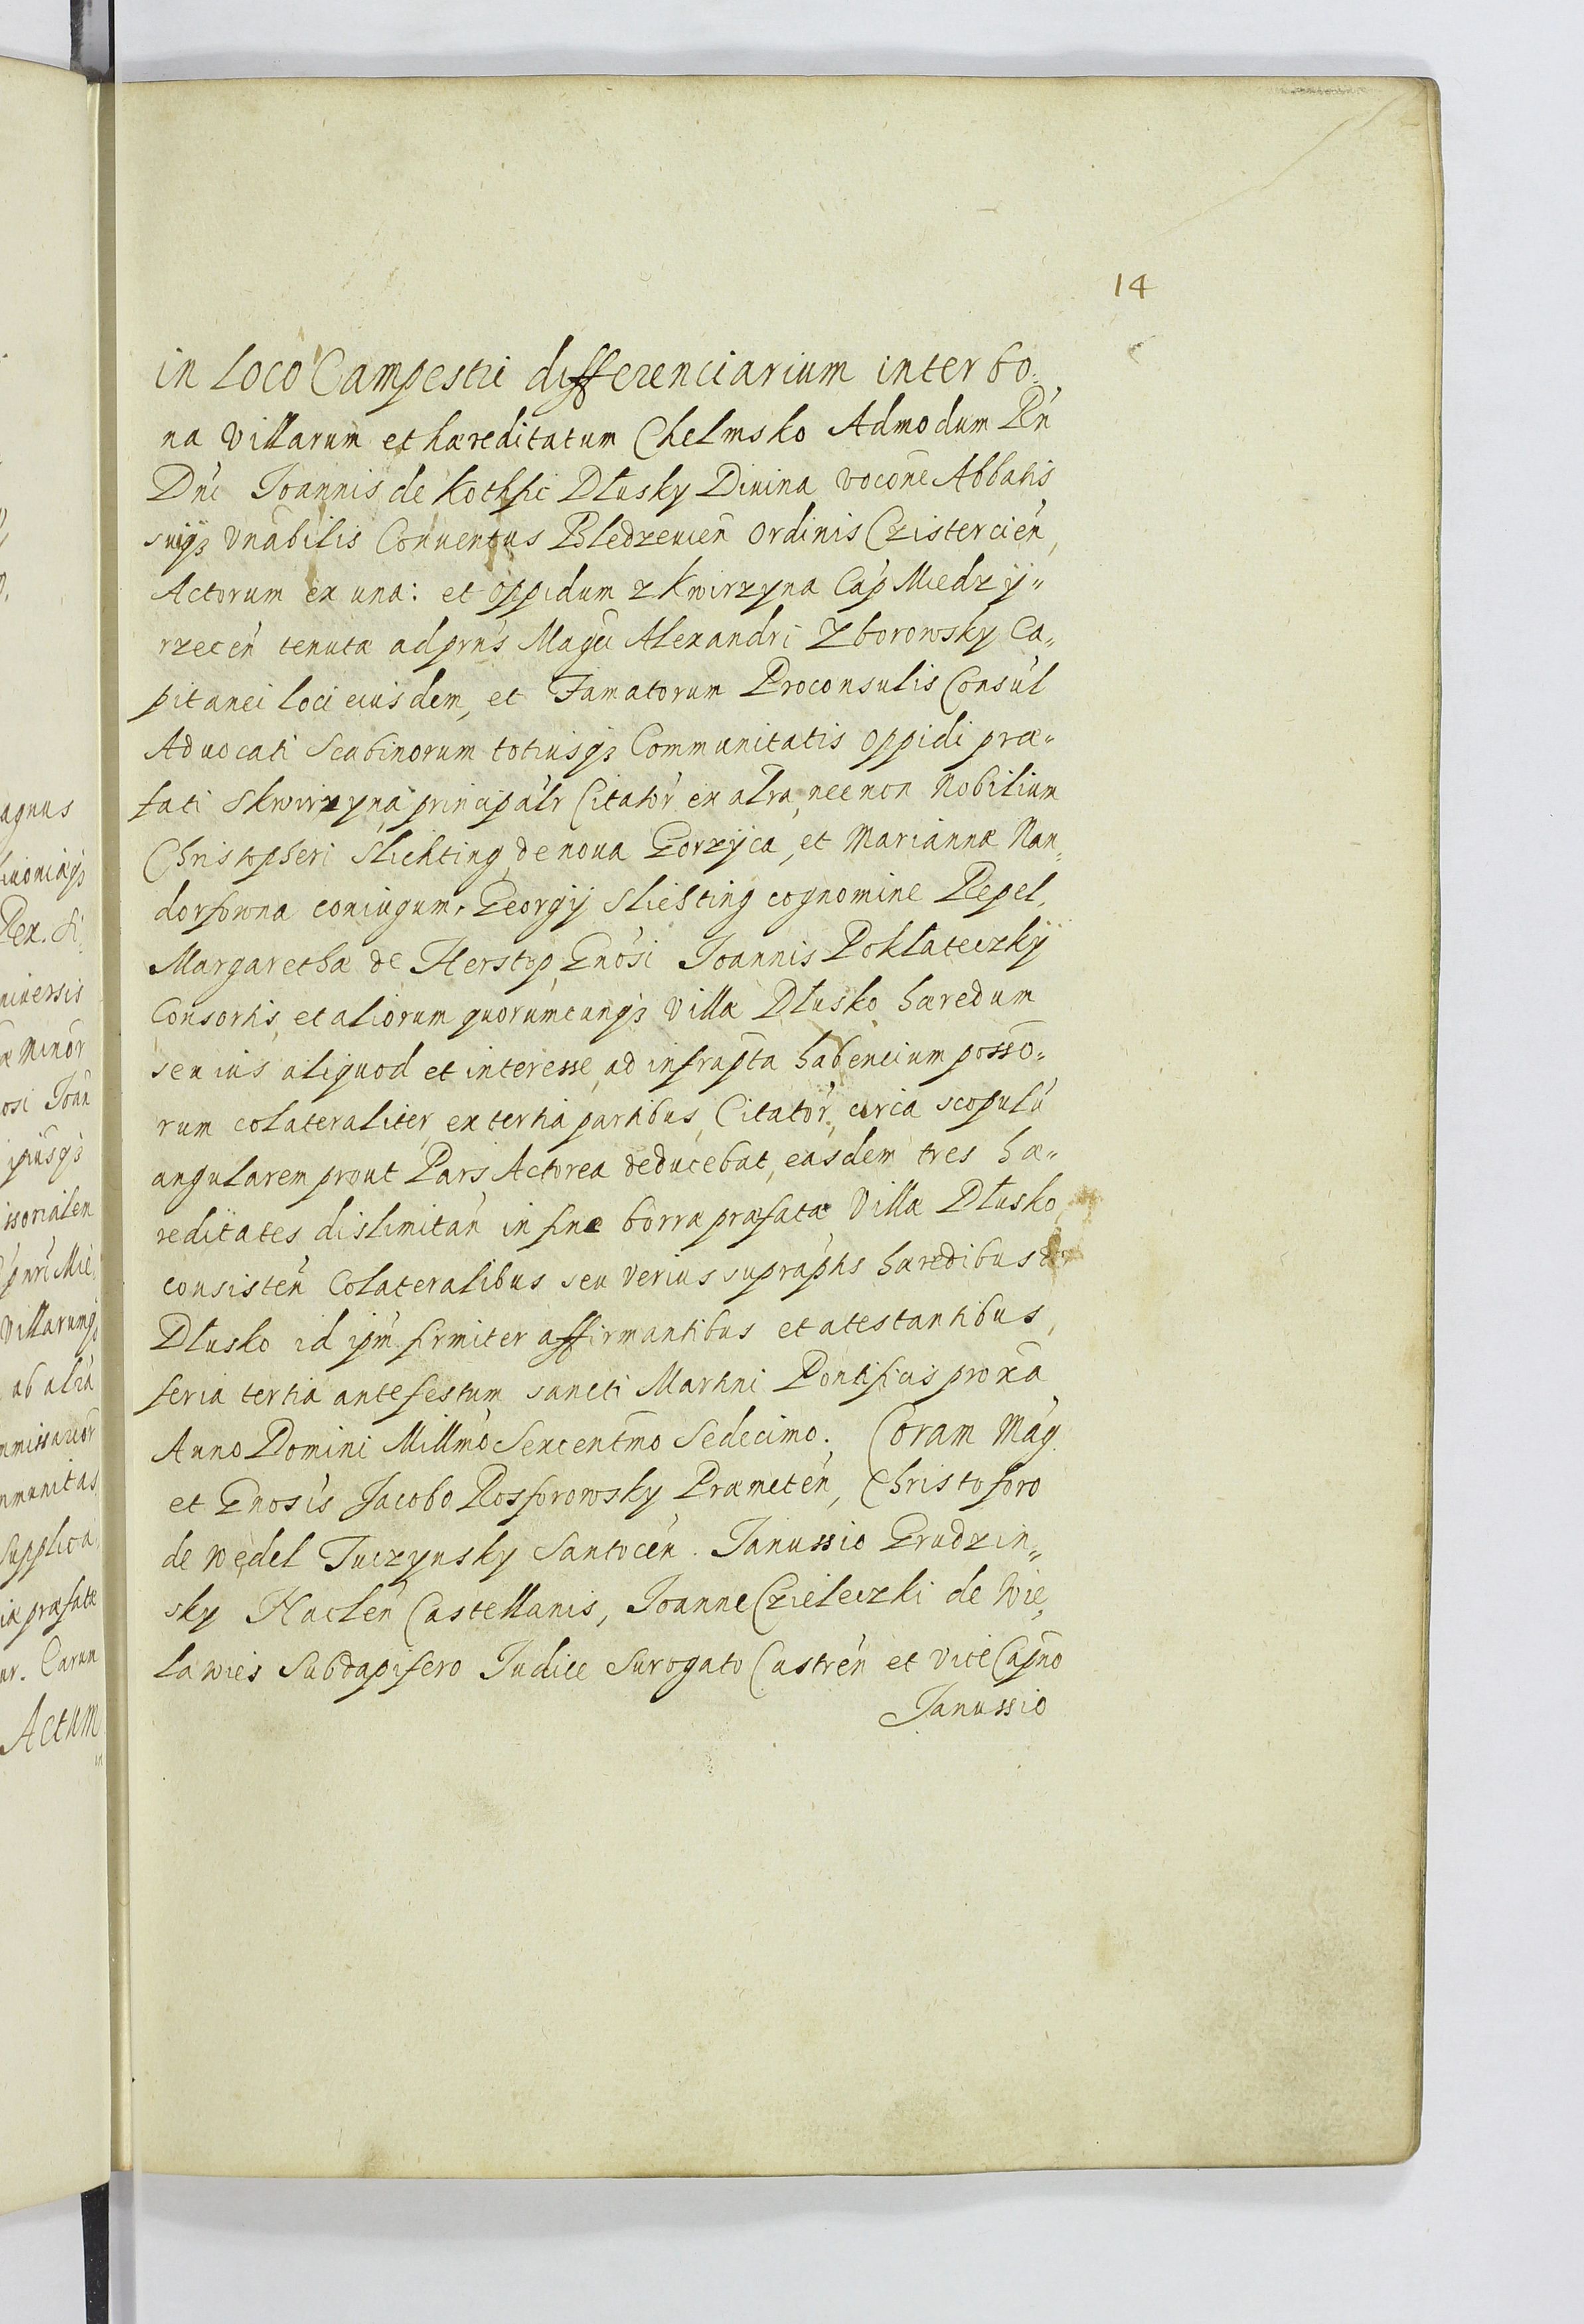 14
in loco Campestri differenciarium inter bo:
na villarum et hæreditatum Chelmsko Admodum Rn̄
Dn̄i Ioannis de Dłusky Diuina vocōne Abbatis
suiqꝫ Vnābilis Conuentus Bledzeuien̄ Ordinis Czistercien̄,
Actorum ex una: et oppidum zkwirzyna Cap̄ Miedzy„
rzecen̄ tenuta ad prn̄s Magci Alexandri Zborowsky Ca„
pitanei loci eiusdem, et Famatorum Proconsulis Consul̄
Aduocati Scabinorum totiusqꝫ Communitatis oppidi præ„
fati Skwirzyna principālr Citator̄ ex altra, necnon Nobilium
Christopheri Slichting de noua Gorzyca, et Mariannæ Nan„
dorfowna coniugum, Georgij Slichting cognomine Repel,
Margarethæ de Herstop Gnosi Ioannis Pokłateczkÿ
Consortis, et aliorum quorumcunqꝫ Villæ Dłusko hæredum
seu ius aliquod et interesse, ad infrap̄ta habencium posso„
rum colateraliter, ex tertia partibus, Citator̄, circa scopulū
angularem prout Pars Actorea deducebat, easdem tres hæ„
reditates dislimitan̄ in fine borræ præfatæ Villæ Dłusko,
consisten̄ Colateralibus seu Verius suprap̄tis hæredibus de
Dłusko id ipm̄ firmiter affirmantibus et atestantibus,
feria tertia ante festum sancti Martini Pontificis proxā
Anno Domini Millm̄o Sexcentm̄o Sedecimo. Coram Maḡ
et Gnosis Jacobo Rosforowsky Præmeten̄, Christoforo
de Wedel Tuczynsky Santocen̄. Ianussio Grudzin„
sky Naclen̄ Castellanis, Ioanne Czieleczki de Wie„
lawies Subdapifero Iudice Surogato Castren̄ et Vice Capn̄o
Janussio
agnus
Rex.
niuersis
Minor̄
osi Ioan̄
ipiusqꝫ
issorialen
Villarumqꝫ
ab altra
nmunitas
Supplica
præfatæ
Earum
Actum